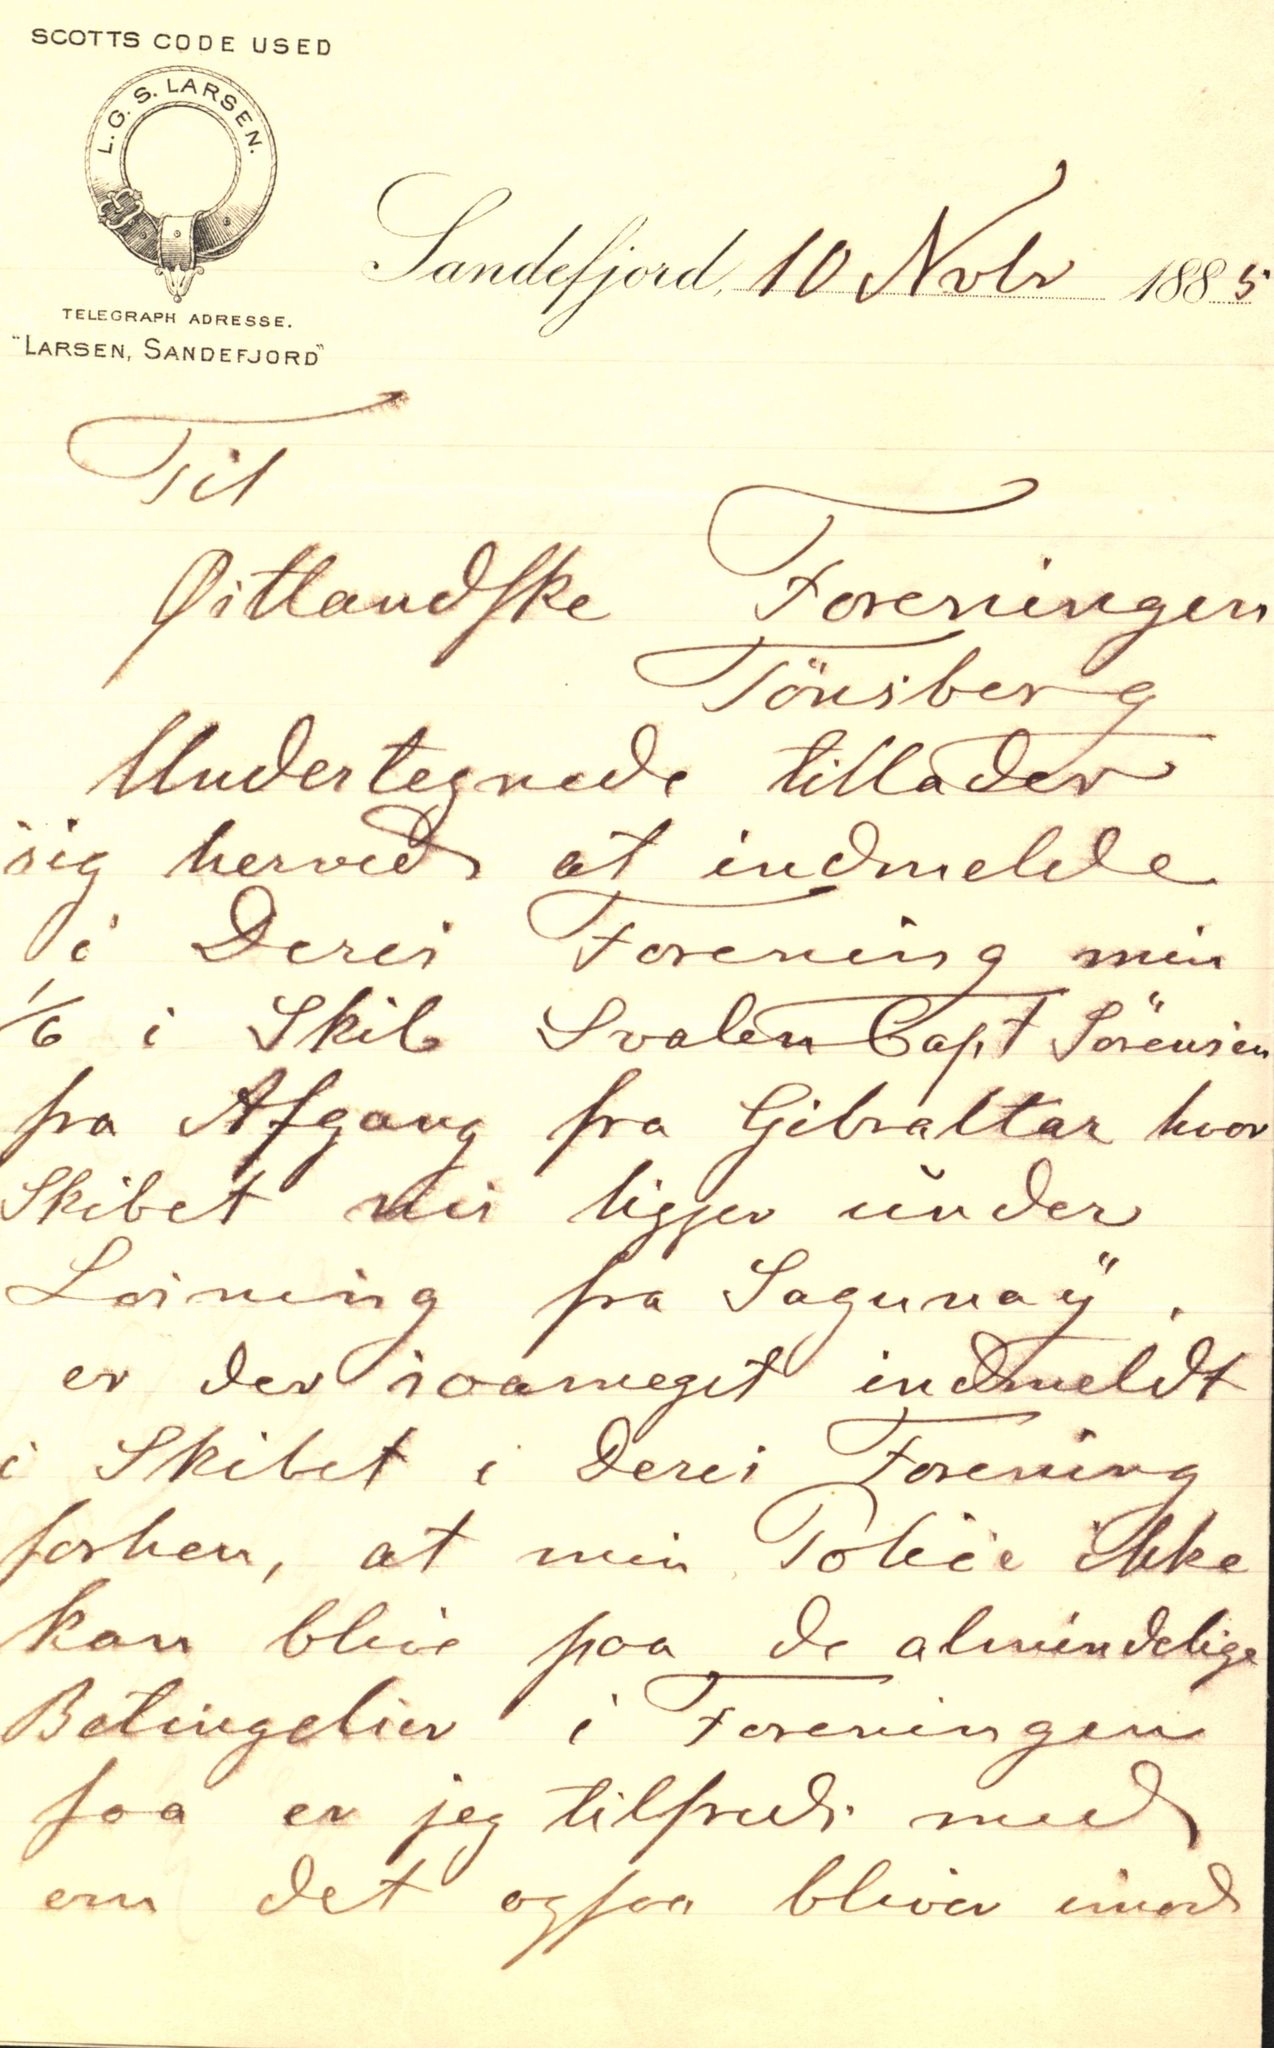 SCOTTS CODE USED
L. G. S. LARSEN.
TELEGRAPH ADRESSE.
"LARSEN, SANDEFJORD"
Sandefjord, 10 Novbr 1885
Til
Østlandske Foreningen
Tönsberg
Undertegnede tillader
sig herved at indmelde
i Deres Forening min
1/6 i Skib Svalen Capt Sörensen
fra Afgang fra Gibraltar hvor
Skibet nu ligger under
Losning fra Sagunay.
er der saameget indmeldt
i Skibet i Deres Forening
forhen, at min Police ikke
kan blive paa de almindelige
Betingelser i Foreningen
saa er jeg tilfreds med
om det ogsaa bliver imod